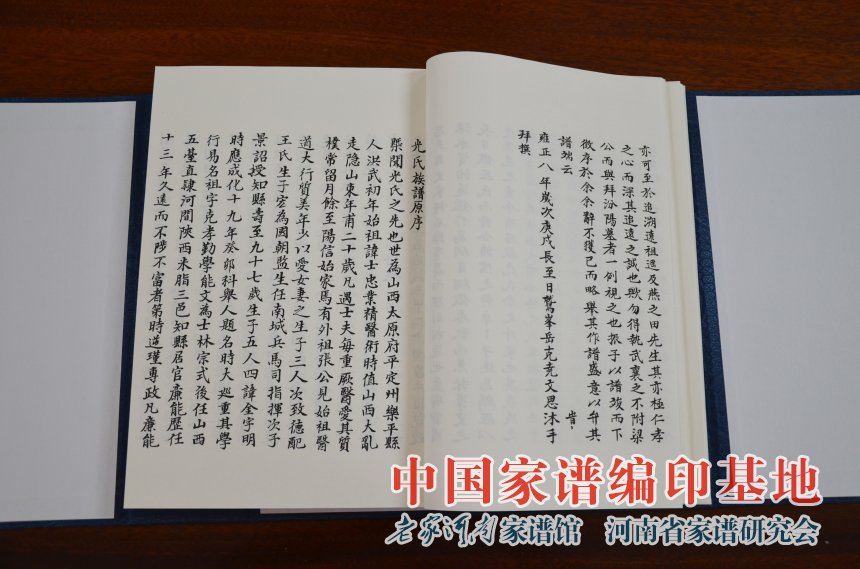 亦可至於追溯遠祖迄及燕之田先生其亦極仁孝
之心而深其追遠之誠也歟勿得執武襄之不附梁
公而與拜汾陽墓者一例視之也振子以譜竣而下
徵序於余余辭不獲已而略舉其作譜盛意以弁其
譜端云 皆
雍正八年歲次庚戌長至日鷲峯岳克竞文思沐手
拜撰
光氏族譜原序
槩聞光氏之先也世為山西太原府平定州樂平縣
人洪武初年始祖諱士忠業精醫術時值山西大亂
走隐山東年甫二十歲凡遇士夫每重厥醫愛其質
樸常留月餘至陽信始家馬有外祖張公見始祖醫
道大行質美年少以愛女妻之生子三人次致德配
王氏生子宏為國朝監生任南城兵馬司指揮次子
景詔授知縣壽至九十七歲生子五人四諱金字明
時應成化十九年癸卯科舉人題名時大巡重其學
行易名祖字克孝勤學能文為士林宗式後任山西
五臺直隸河間陝西米脂三邑知縣居官廉能歷任
十三年久遠而不陟不富者第時道瑾專政凡廉能
中国家谱编印基地
老家河南家谱馆 河南省家谱研究会